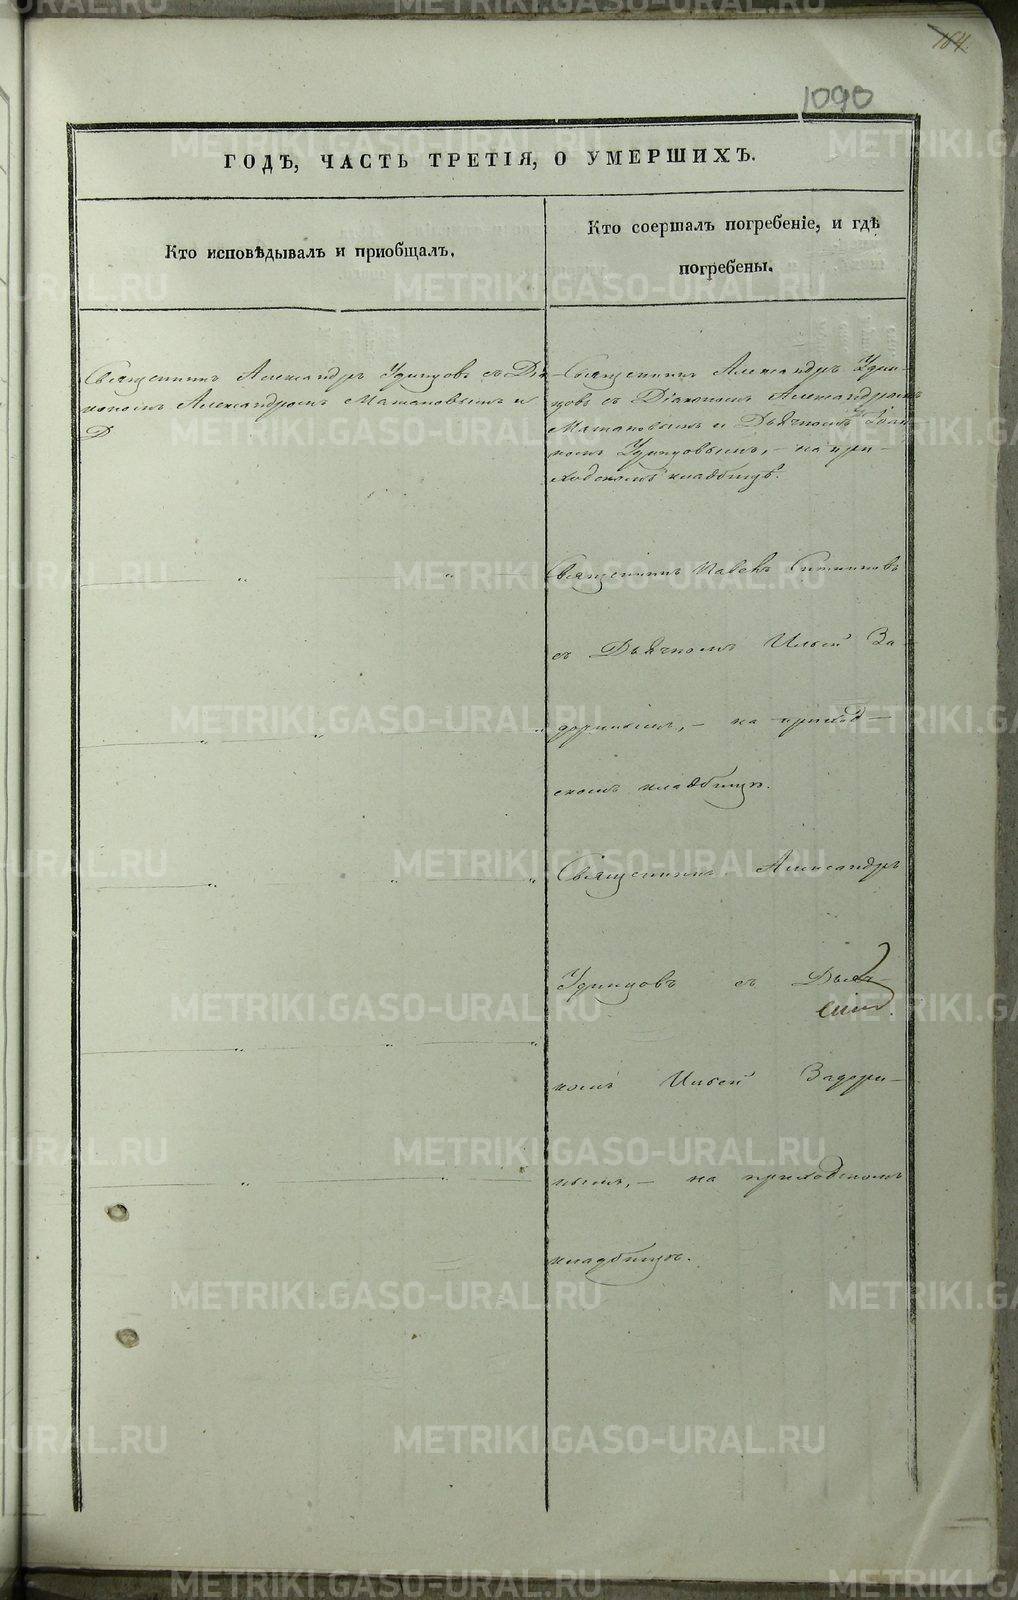 164.
1090
ГОДѢ, ЧАСТЬ ТРЕТІЯ, О УМЕРШИХЪ.
Кто исповѣдывалъ и приобщалъ.
Кто соершалъ погребеніе, и гдѣ
погребены.
Священникъ Александръ Удинцовъ съ Діа-
кономъ Александромъ Матановымъ и
Д
Священникъ Александръ Удин-
цовъ съ Діакономъ Александромъ
Матановымъ и Дьячкомъ
Удинцовымъ, – на при-
ходскомъ кладбищѣ.
Священникъ Павелъ
съ Дьячкомъ Ильей За-
доринымъ, – на приход-
скомъ кладбищѣ.
Священникъ Александръ
Удинцовъ съ Дьяч-
комъ Ильей Задори-
нымъ, – на приходскомъ
кладбищѣ.
METRIKI.GASO-URAL.RU